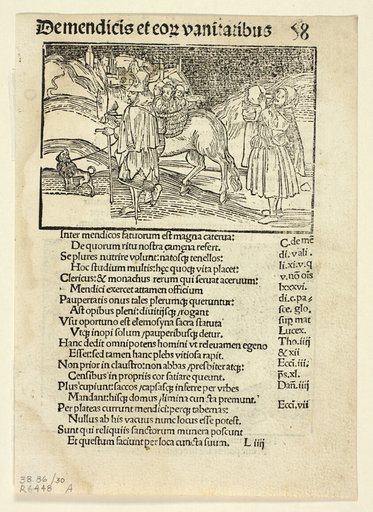 De mendicis et eoꝝ vanitatibus 58
Inter mendicos fatuorum est magna caterua:
De quorum ritu nostra camęna refert.
Se plures nutrire volunt: natosq; tenellos:
Hoc studium multis: hęc quoq; vita placet:
Clericus: & monachus rerum qui seruat aceruum:
Mendici exercet attamen officium
Paupertatis onus tales plerumq; queruntur:
Ast opibus pleni: diuitijsq; rogant
Vsu oportuno est elemosyna sacra statuta
Vtq; inopi solum / pauperibusq; detur.
Hanc dedit omnipotens homini vt releuamen egeno
Esset: sed tamen hanc plebs vitiosa rapit.
Non prior in claustro non abbas / presbiter atq;:
Censibus in propriis cor satiare queunt.
Plus cupiunt: saccos / capsasq; inferre per vrbes
Mandant: hisq; domus / limina cuncta premunt.
Per plateas currunt mendici: perq; tabernas:
Nullus ab his vacuus nunc locus esse potest.
Sunt qui reliquiis sanctorum munera poscunt
Et questum faciunt per loca cuncta suum. L iiij
C. de mē
di. vali.
li. xi. v. q
v. nō oīs
lxxxvi.
di. c. pa⸗
sce. glo.
sup mat
Lucex.
Tho. iiij
& xii
Ecci. iii.
p̄s. xl.
Dañ. iiij
Ecci. vii
38.86/30
R6448 A